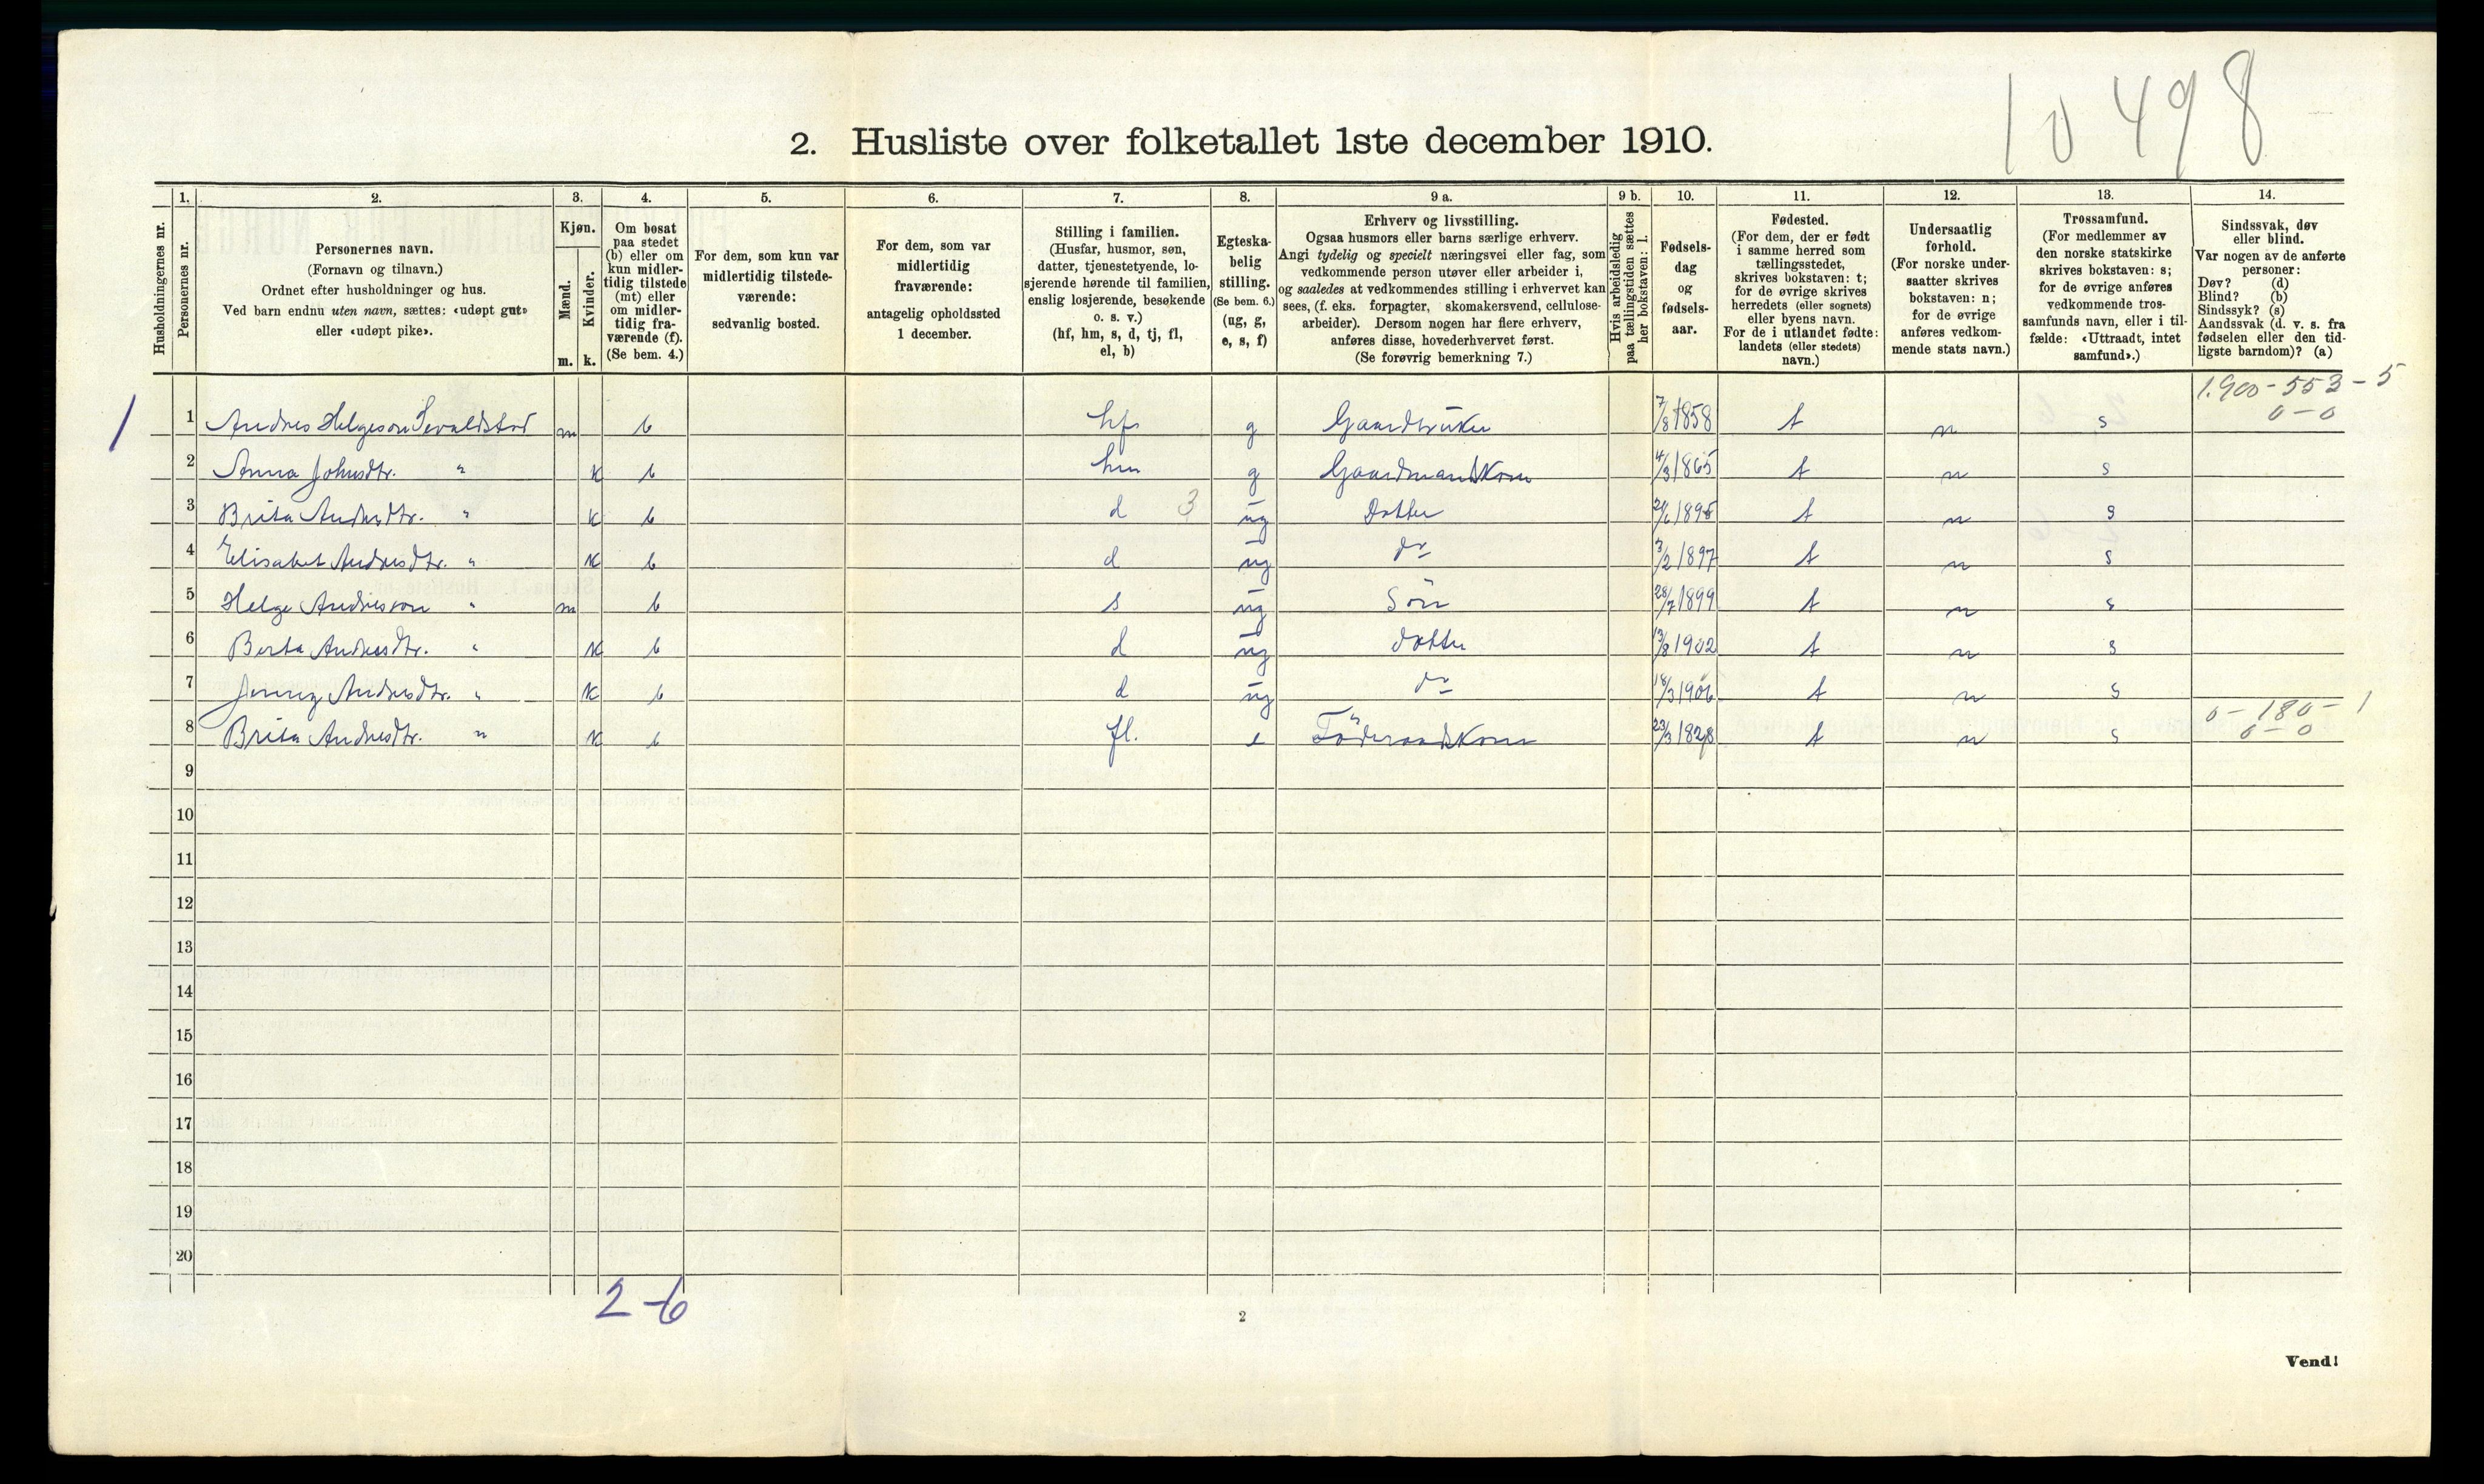 10 498
2. Husliste over folketallet 1ste december 1910.
Husholdningernes nr.
1.
Personernes nr.
2.
Personernes navn.
(Fornavn og tilnavn.)
Ordnet efter husholdninger og hus.
Ved barn endnu uten navn, sættes: «udøpt gut»
eller «udøpt pike».
3.
Kjøn.
Mænd.
m.
Kvinder.
k.
4.
Om bosat
paa stedet
(b) eller om
kun midler-
tidig tilstede
(mt) eller
om midler-
tidig fra-
værende (f).
(Se bem. 4.)
5.
For dem, som kun var
midlertidig tilstede-
værende:
sedvanlig bosted.
6.
For dem, som var
midlertidig
fraværende:
antagelig opholdssted
1 december.
7.
Stilling i familien.
(Husfar, husmor, søn,
datter, tjenestetyende, lo-
sjerende hørende til familien,
enslig losjerende, besøkende
o. s. v.)
(hf, hm, s, d, tj, fl,
el, b)
8.
Egteska-
belig
stilling.
(Se bem. 6.)
(ug, g,
e, s, f)
9 a.
Erhverv og livsstilling.
Ogsaa husmors eller barns særlige erhverv.
Angi tydelig og specielt næringsvei eller fag, som
vedkommende person utøver eller arbeider i,
og saaledes at vedkommendes stilling i erhvervet kan
sees, (f. eks. forpagter, skomakersvend, cellulose-
arbeider). Dersom nogen har flere erhverv,
anføres disse, hovederhvervet først.
(Se forøvrig bemerkning 7.)
9 b.
Hvis arbeidsledig
paa tællingstiden sættes
her bokstaven: l.
10.
Fødsels-
dag
og
fødsels-
aar.
11.
Fødested.
(For dem, der er født
i samme herred som
tællingsstedet,
skrives bokstaven: t;
for de øvrige skrives
herredets (eller sognets)
eller byens navn.
For de i utlandet fødte:
landets (eller stedets)
navn.)
12.
Undersaatlig
forhold.
(For norske under-
saatter skrives
bokstaven: n;
for de øvrige
anføres vedkom-
mende stats navn.)
13.
Trossamfund.
(For medlemmer av
den norske statskirke
skrives bokstaven: s;
for de øvrige anføres
vedkommende tros-
samfunds navn, eller i til-
fælde: «Uttraadt, intet
samfund».)
14.
Sindssvak, døv
eller blind.
Var nogen av de anførte
personer:
Døv? (d)
Blind? (b)
Sindssyk? (s)
Aandssvak (d. v. s. fra
fødselen eller den tid-
ligste barndom)? (a)
1.900-553-5
0-0
1 1 Andres Helgeson Sevaldstad m b hf g Gaardbruker 7/8 1858 t n s
2 Anna Johnsdtr. " k b hm g Gaardmandskone 4/3 1865 t n s
3 Brita Andresdtr. " k b d 3 ug Dotter 1895 t n s
4 Elisabet Andresdtr. " k b d ug do 3/2 1897 t n s
5 Helge Andresson " m b s ug Sön 28/7 1899 t n s
6 Berta Andresdtr. " k b d ug dotter 13/8 1902 t n s
7 Jenny Andresdtr. " k b d ug do 18/3 1906 t n s
0-180-1
8 Brita Andresdtr. " k b fl. e Föderaadskone 23/3 1828 t n s 0-0
9
10
11
12
13
14
15
16
17
18
19
20
2-6
2
Vend!